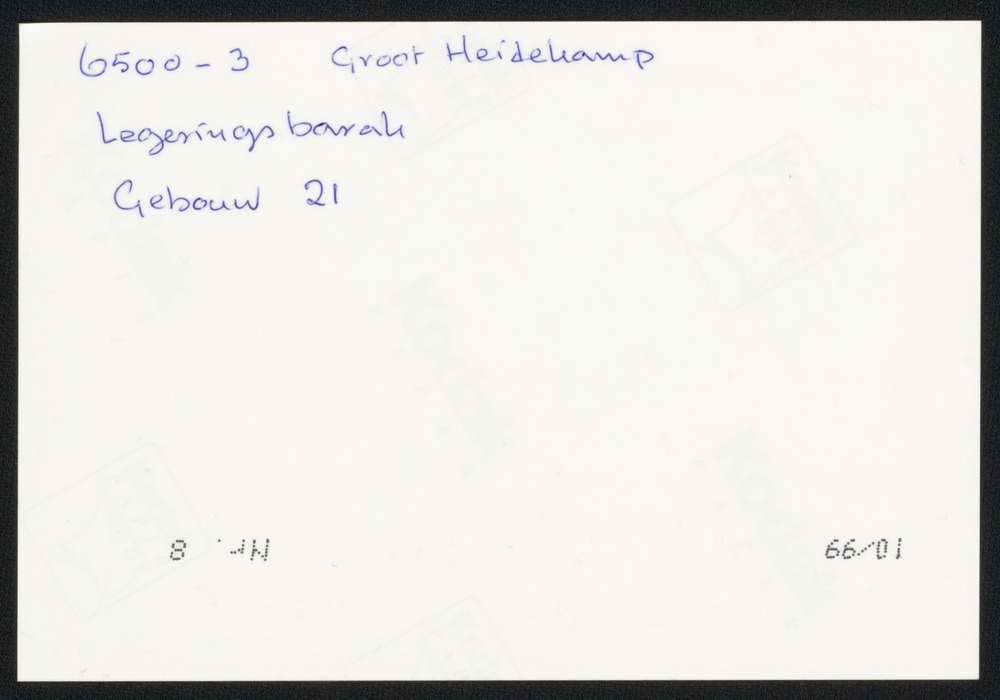 6500-3 Groot Heidekamp
Legeringsbarak
Gebouw 21
10/99 Nr. 8
Kodak
Kodak